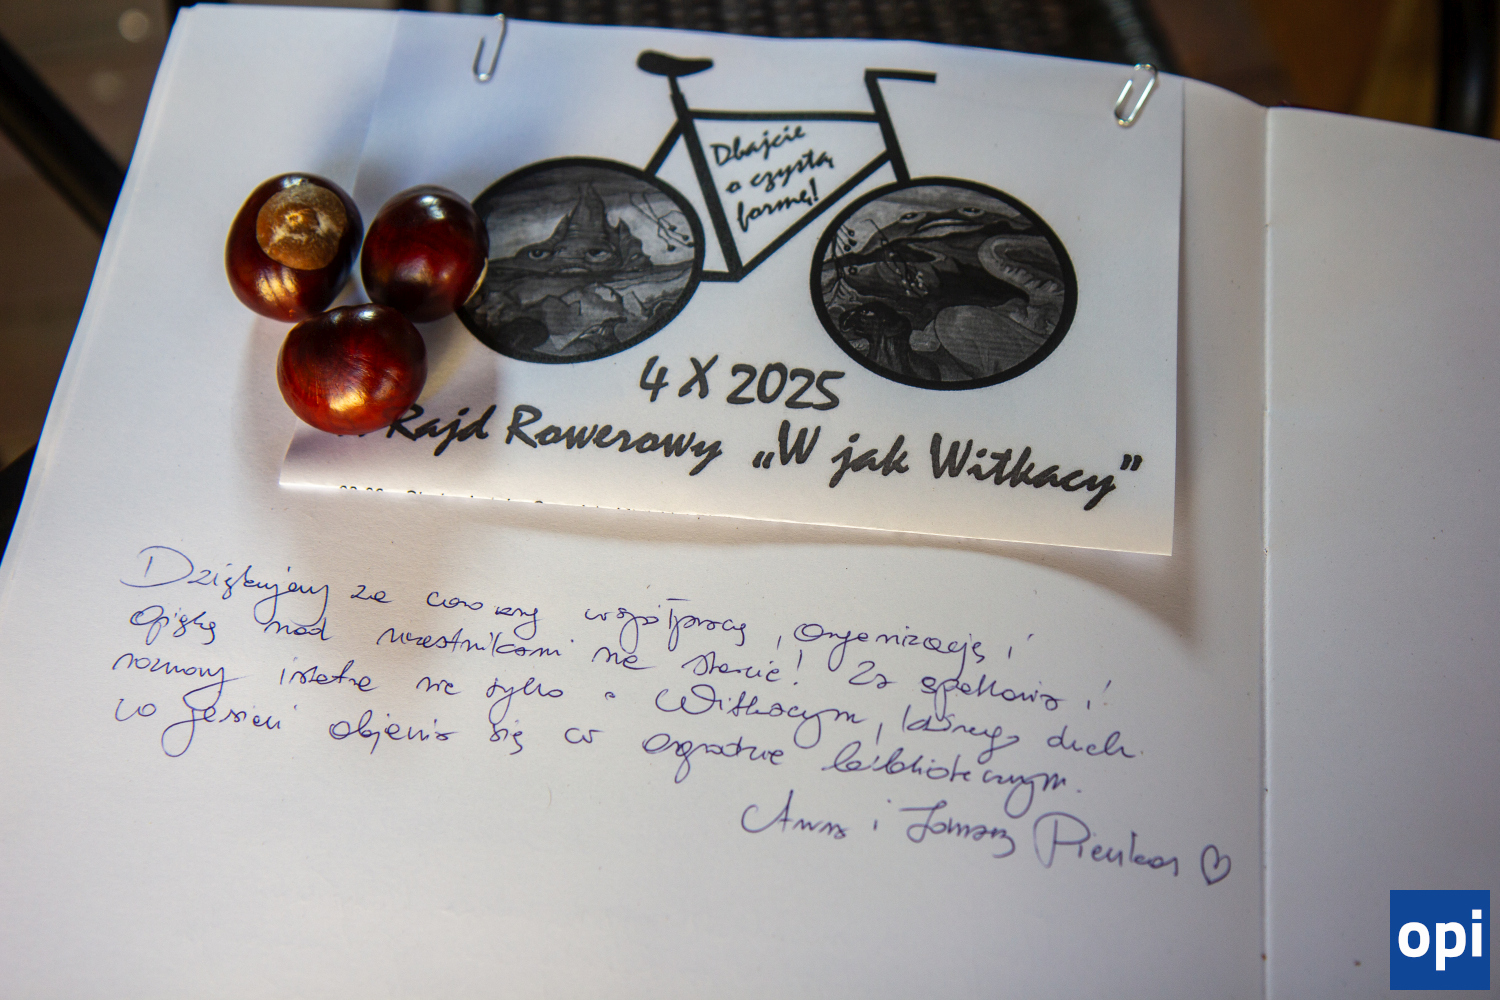 Dbajcie
o czystą
formę!
4 X 2025
Rajd Rowerowy „W jak Witkacy”
Dziękujemy za owocną współpracę, organizację i
opiekę nad uczestnikami na starcie! Za spotkania i
rozmowy nie tylko o Witkacym, którego duch
co jesień objawia się w ogrodzie bibliotecznym.
Anna i Tomasz
opi